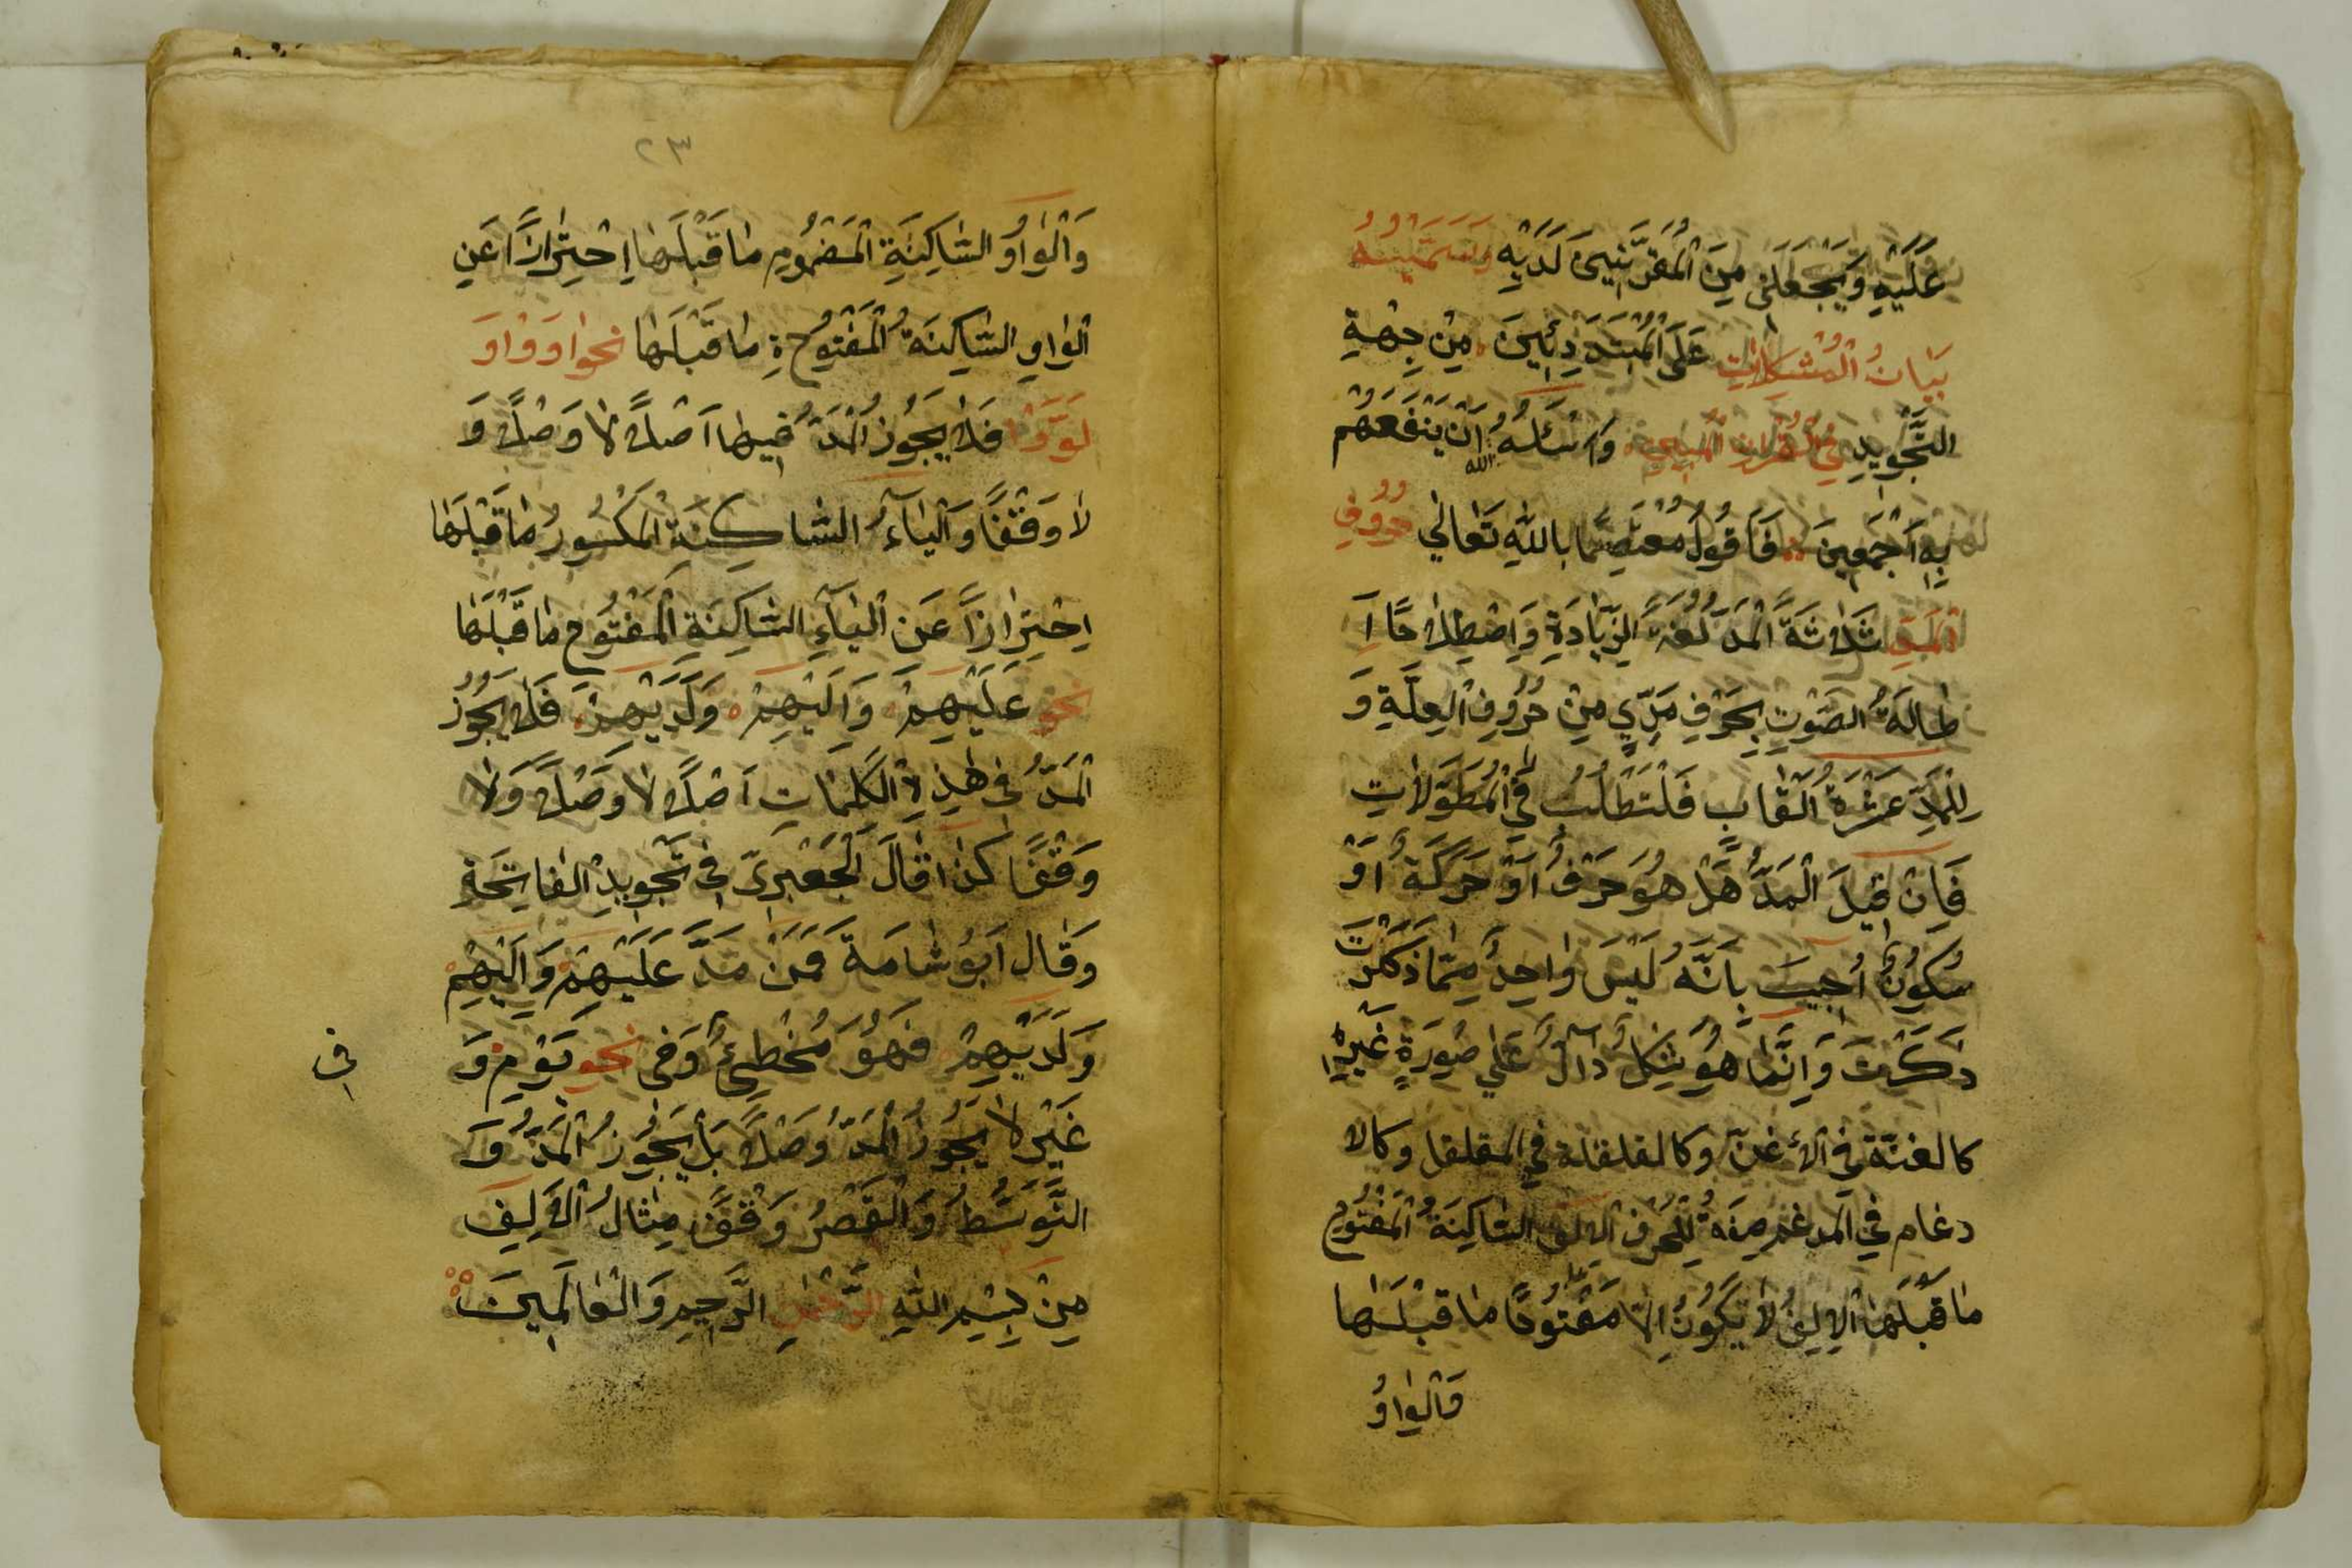 عَلَيْهِ وَيَجْعَلَنِي مِنَ الْمُقَرَّبِينَ لَدَيْهِ وَسَمَّيْتُهُ
بَيَانُ الْمُشْكِلَاتِ عَلَى الْمُبْتَدِئِينَ مِنْ جِهَةِ
التَّجْوِيدِ فِي الْقُرْآنِ الْمُبِينِ وَاسْئَلُ اللّٰه اَنْ يَنْفَعَهُمْ
بِهِ اَجْمَعِينَ فَاَقُولُ مُعْتَصِمًا بِاللّٰهِ تَعَالٰي حُرُوفُ
الْمَدِّ ثَلَاثَةٌ الْمَدُّ لُغَةً الزِّيَادَةُ وَاصْطِلَاحًا اِ
طَالَةُ الصَّوْتِ بِحَرْفِ مَدِّيٍّ مِنْ حُرُوفِ الْعِلَّةِ وَ
لِلْمَدِّ عَشْرَةُ اَلْقَابٍ فَلْتُطْلَبْ فِي الْمُطَوَّلَاتِ
فَاِنْ قِيلَ الْمَدُّ هَلْ هُوَ حَرْفٌ اَوْ حَرَكَةٌ اَوْ
سُكُونٌ اُجِيبَ بِاَنَّهُ لَيْسَ وَاحِدٌ مِمَّا ذَكَرْتَ
ذَكَرْتَ وَاِنَّمَا هُوَ شَكْلٌ دَآلٌّ عَلٰي صُورَةِ غَيْرِهَا
كالغنّة في الأغنّ وكالقلقلة في المقلقل وكالا
دغام في المدغم صفةٌ للحرف الالف السَّاكِنَةُ الْمَفْتُوحِ
مَا قَبْلَهَا الْاَلِفُ لَا يَكُونُ اِلَّا مَفْتُوحًا مَا قَبْلَهَا
وَالْوَاوُ
٢٣
وَالْوَاوُ السَّاكِنَةِ الْمَضْمُومِ مَا قَبْلَهَا اِحْتِرَازًا عَنِ
الْوَاوِ السَّاكِنَةُ الْمَفْتُوحَةِ مَا قَبْلَهَا نَحْوَ اَوَوْا وَ
لَوَّوْا فَلَا يَجُوزُ الْمَدُّ فِيهَا اَصْلًا لَا وَصْلًا وَ
لَا وَقْفًا وَالْيَآءُ السَّاكِنَةِ الْمَكْسُورُ مَا قَبْلَهَا
اِحْتِرَازًا عَنِ الْيَآءِ السَّاكِنَةِ الْمَفْتُوحِ مَا قَبْلَهَا
نَحْوِ عَلَيْهِمْ وَاِلَيْهِمْ وَلَدَيْهِمْ فَلَا يَجُوزُ
الْمَدُّ فِي هٰذِهِ الْكَلِمَاتِ اَصْلًا لَا وَصْلًا وَلَا
وَقْفًا كَذَا قَالَ الْجَعْبَرِيّ فِي تَجْوِيدِ الْفَاتِحَةِ
وَقَالَ اَبُو شَامَةَ فَمَنْ مَدَّ عَلَيْهِمْ وَاِلَيْهِمْ
وَلَدَيْهِمْ فَهُوَ مُخْطِئٌ وَفِي نَحْوِ يَوْمٍ وَ
فى
غَيْرِ لَا يَجُوزُ الْمَدُّ وَصْلًا بَلْ يَجُوزُ الْمَدُّ وَ
التَّوَسُّطُ وَالْقَصْرُ وَقْفًا مِثَالُ الْاَلِفِ
مِنْ بِسْمِ اللّٰهِ الرَّحْمٰنِ الرَّحِيمِ وَالْعَالَمِينَ